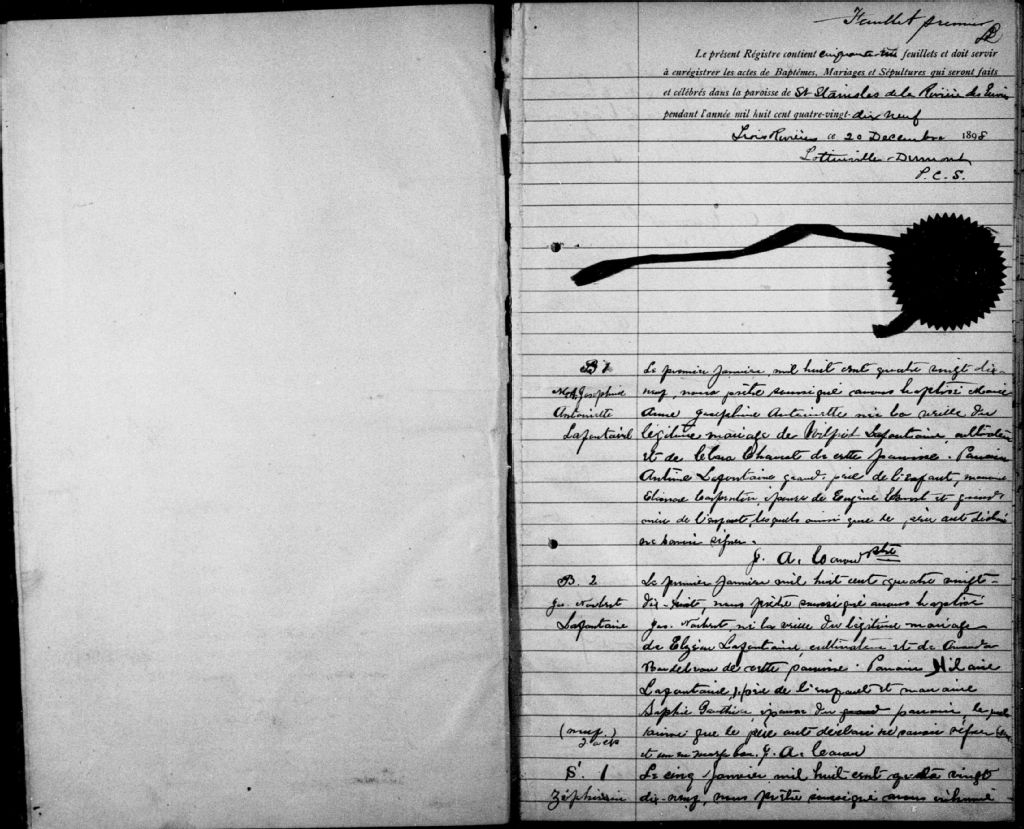 Feuillet premier
Le présent Régistre contient cinquante feuillets et doit servir
à enrégistrer les actes de Baptêmes, Mariages et Sépultures qui seront faits
et célébrés dans la paroisse de St Stanislas de la Rivière des Envies
pendant l'année mil huit cent quatre-vingt-dix neuf
Trois Rivières ce 20 Decembre 1898
Lottinville Dumont
P. C. S.
B 1
Josephine
Antoinette
Lafontaine
Le premier Janvier, mil huit cent quatre vingt dix
neuf, nous prêtre soussigné avons baptisé Marie
Anne Josephine Antoinette née la veille du
légitime mariage de Lafontaine, cultivateur
et de cette paroisse. Parrain
Lafontaine grand père de l'enfant, marraine
épouse de Eugène et grand
mère de l'enfant, lesquels ainsi que le père ont déclaré
ne savoir signer.
J. A. ptre
B. 2
Jos. Norbert
Lafontaine
Le premier Janvier mil huit cent quatre vingt-
dix-huit, nous prêtre soussigné avons baptisé
Jos. Norbert, né la veille du légitime mariage
de Elzéar Lafontaine, cultivateur et de Amanda
de cette paroisse. Parrain Hilaire
Lafontaine, père de l'enfant et marraine
Sophie Gauthier, épouse du parrain, lesquels
(neuf.)
ainsi que le père ont déclaré ne savoir signer
et un mot J. A.
S. 1
Zéphirin
Le cinq Janvier mil huit cent quatre vingt
dix-neuf, nous prêtre soussigné avons inhumé